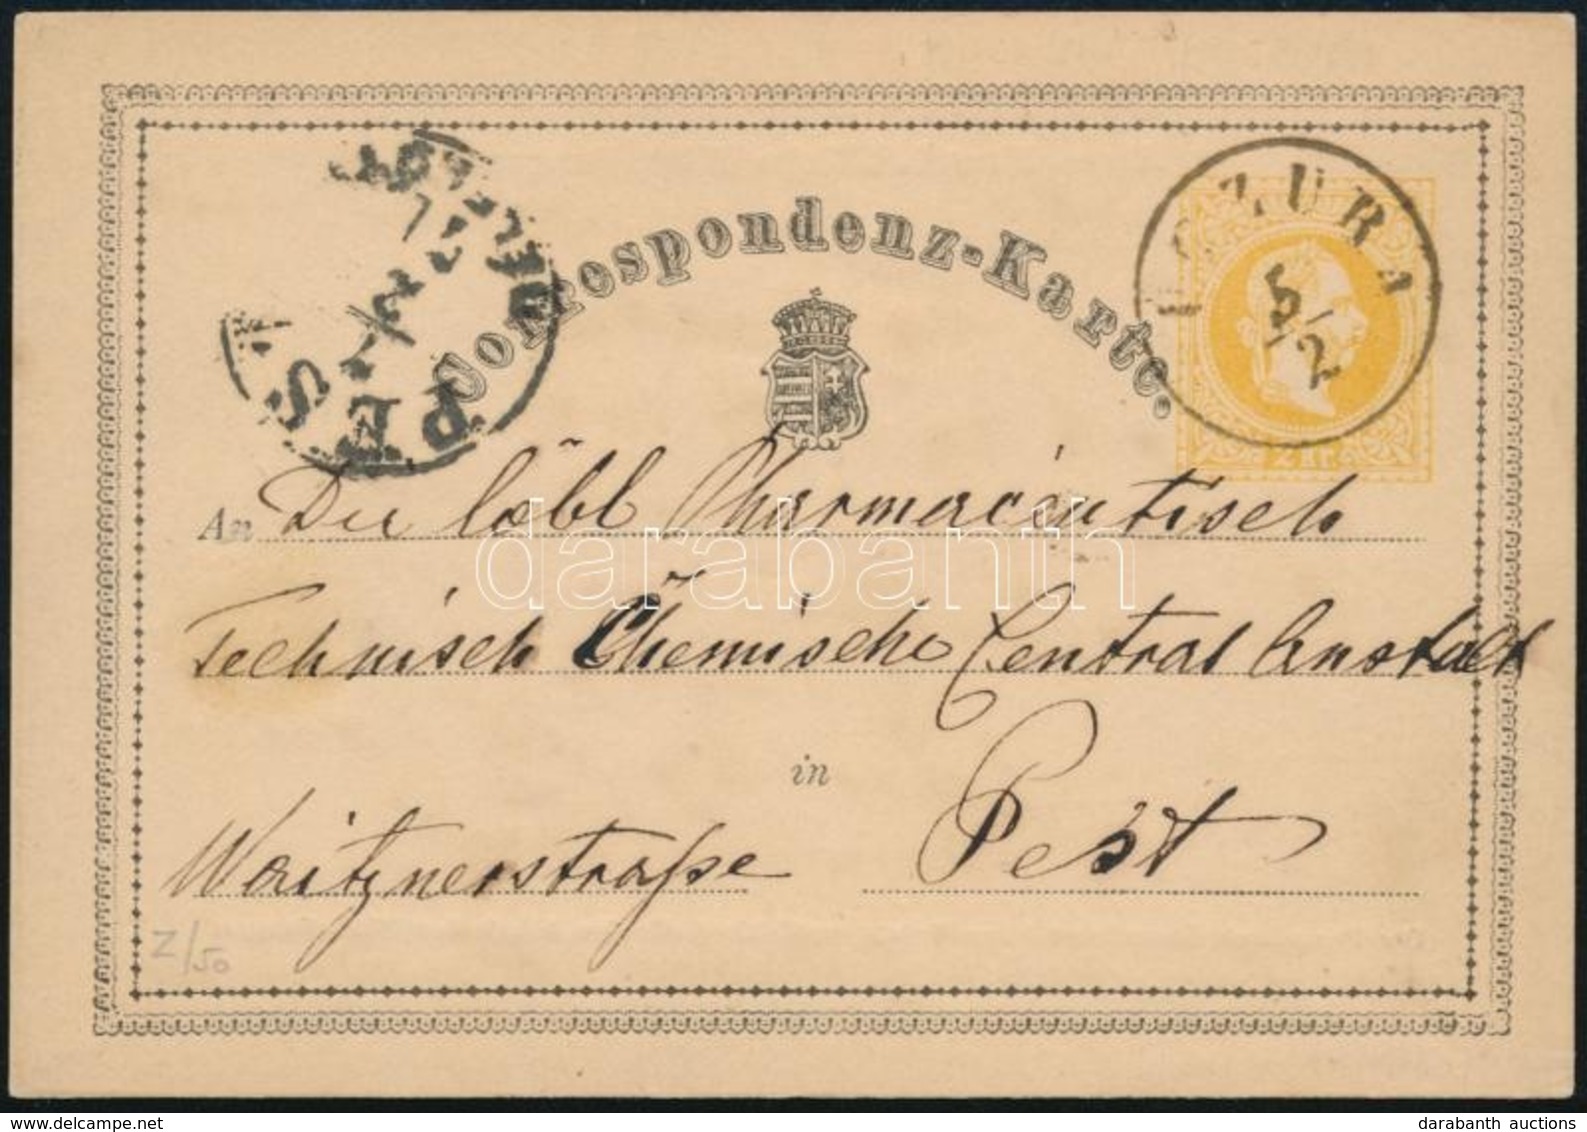 Correspondenz-Karte.
KOZURA
5/2
PEST
2 kr.
An Die löbl Pharmaceutisch
Technisch Chemische Central Anstalt
in Pest
Waitznerstraße
Z/50
darabanth
www.darabanth.com
darabanth auctions